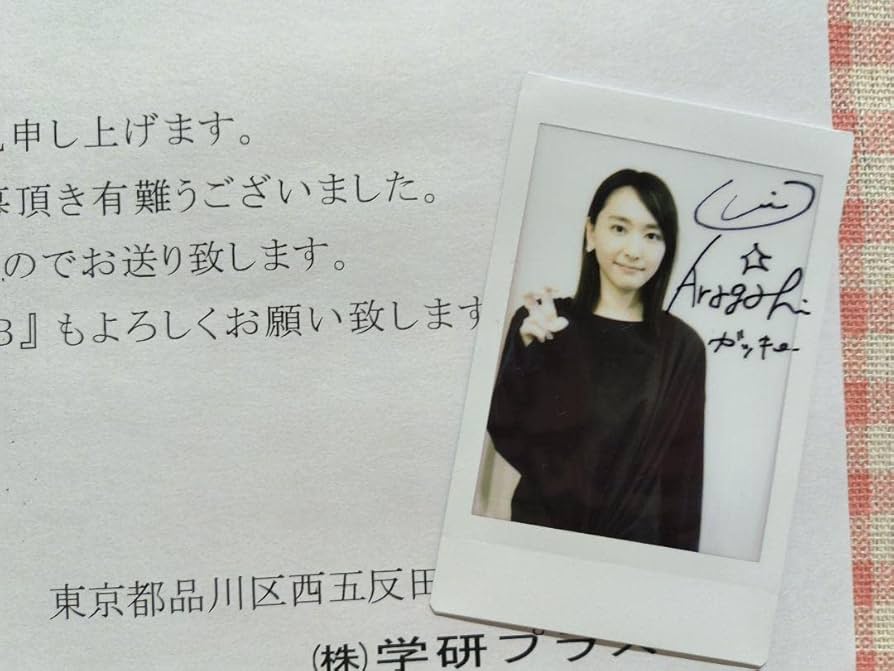 申し上げます。
頂き有難うございました。
のでお送り致します。
3』もよろしくお願い致します
東京都品川区西五反田
(株)学研プラス
☆
Aragaki
ガッキー